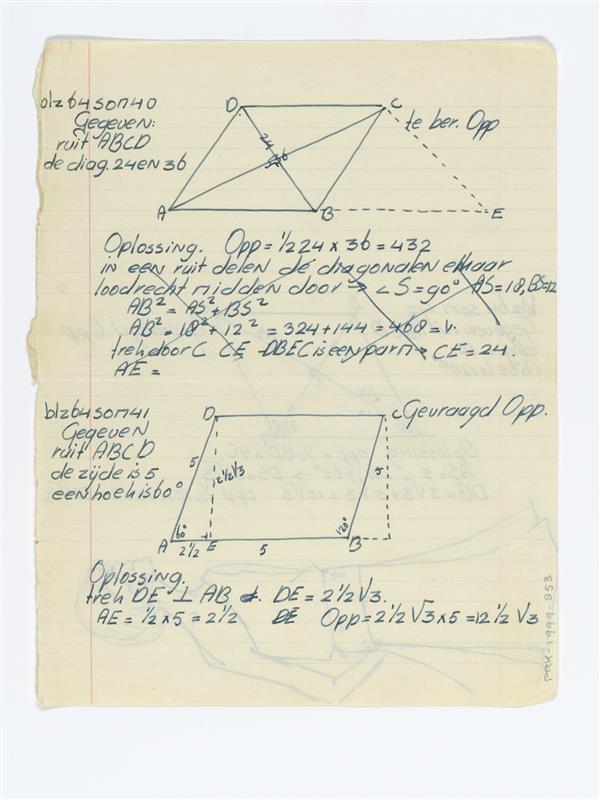 blz 64 som 40
Gegeven:
ruit ABCD
de diag. 24 en 36
D
C
te ber. Opp
24
36
S
A
B
E
Oplossing. Opp = 1/2 24 x 36 = 432
in een ruit delen de diagonalen elkaar
loodrecht midden door → ∠S = 90° AS = 18, BS = 12
AB² = AS² + BS²
AB² = 18² + 12² = 324 + 144 = 468 = V.
trek door C CE DBEC is een parm → CE = 24.
AE =
blz 64 som 41
Gegeven
ruit ABCD
de zijde is 5
een hoek is 60°
D
C Gevraagd Opp.
5
2 1/2 √3
5
60°
120°
A
E
B
2 1/2
5
Oplossing.
trek DE ⊥ AB DE = 2 1/2 √3.
AE = 1/2 x 5 = 2 1/2 DE Opp = 2 1/2 √3 x 5 = 12 1/2 √3
PRK-1999-853